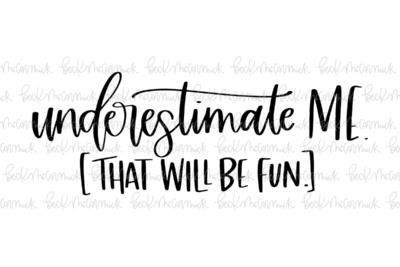 underestimate ME.
[THAT WILL BE FUN.]